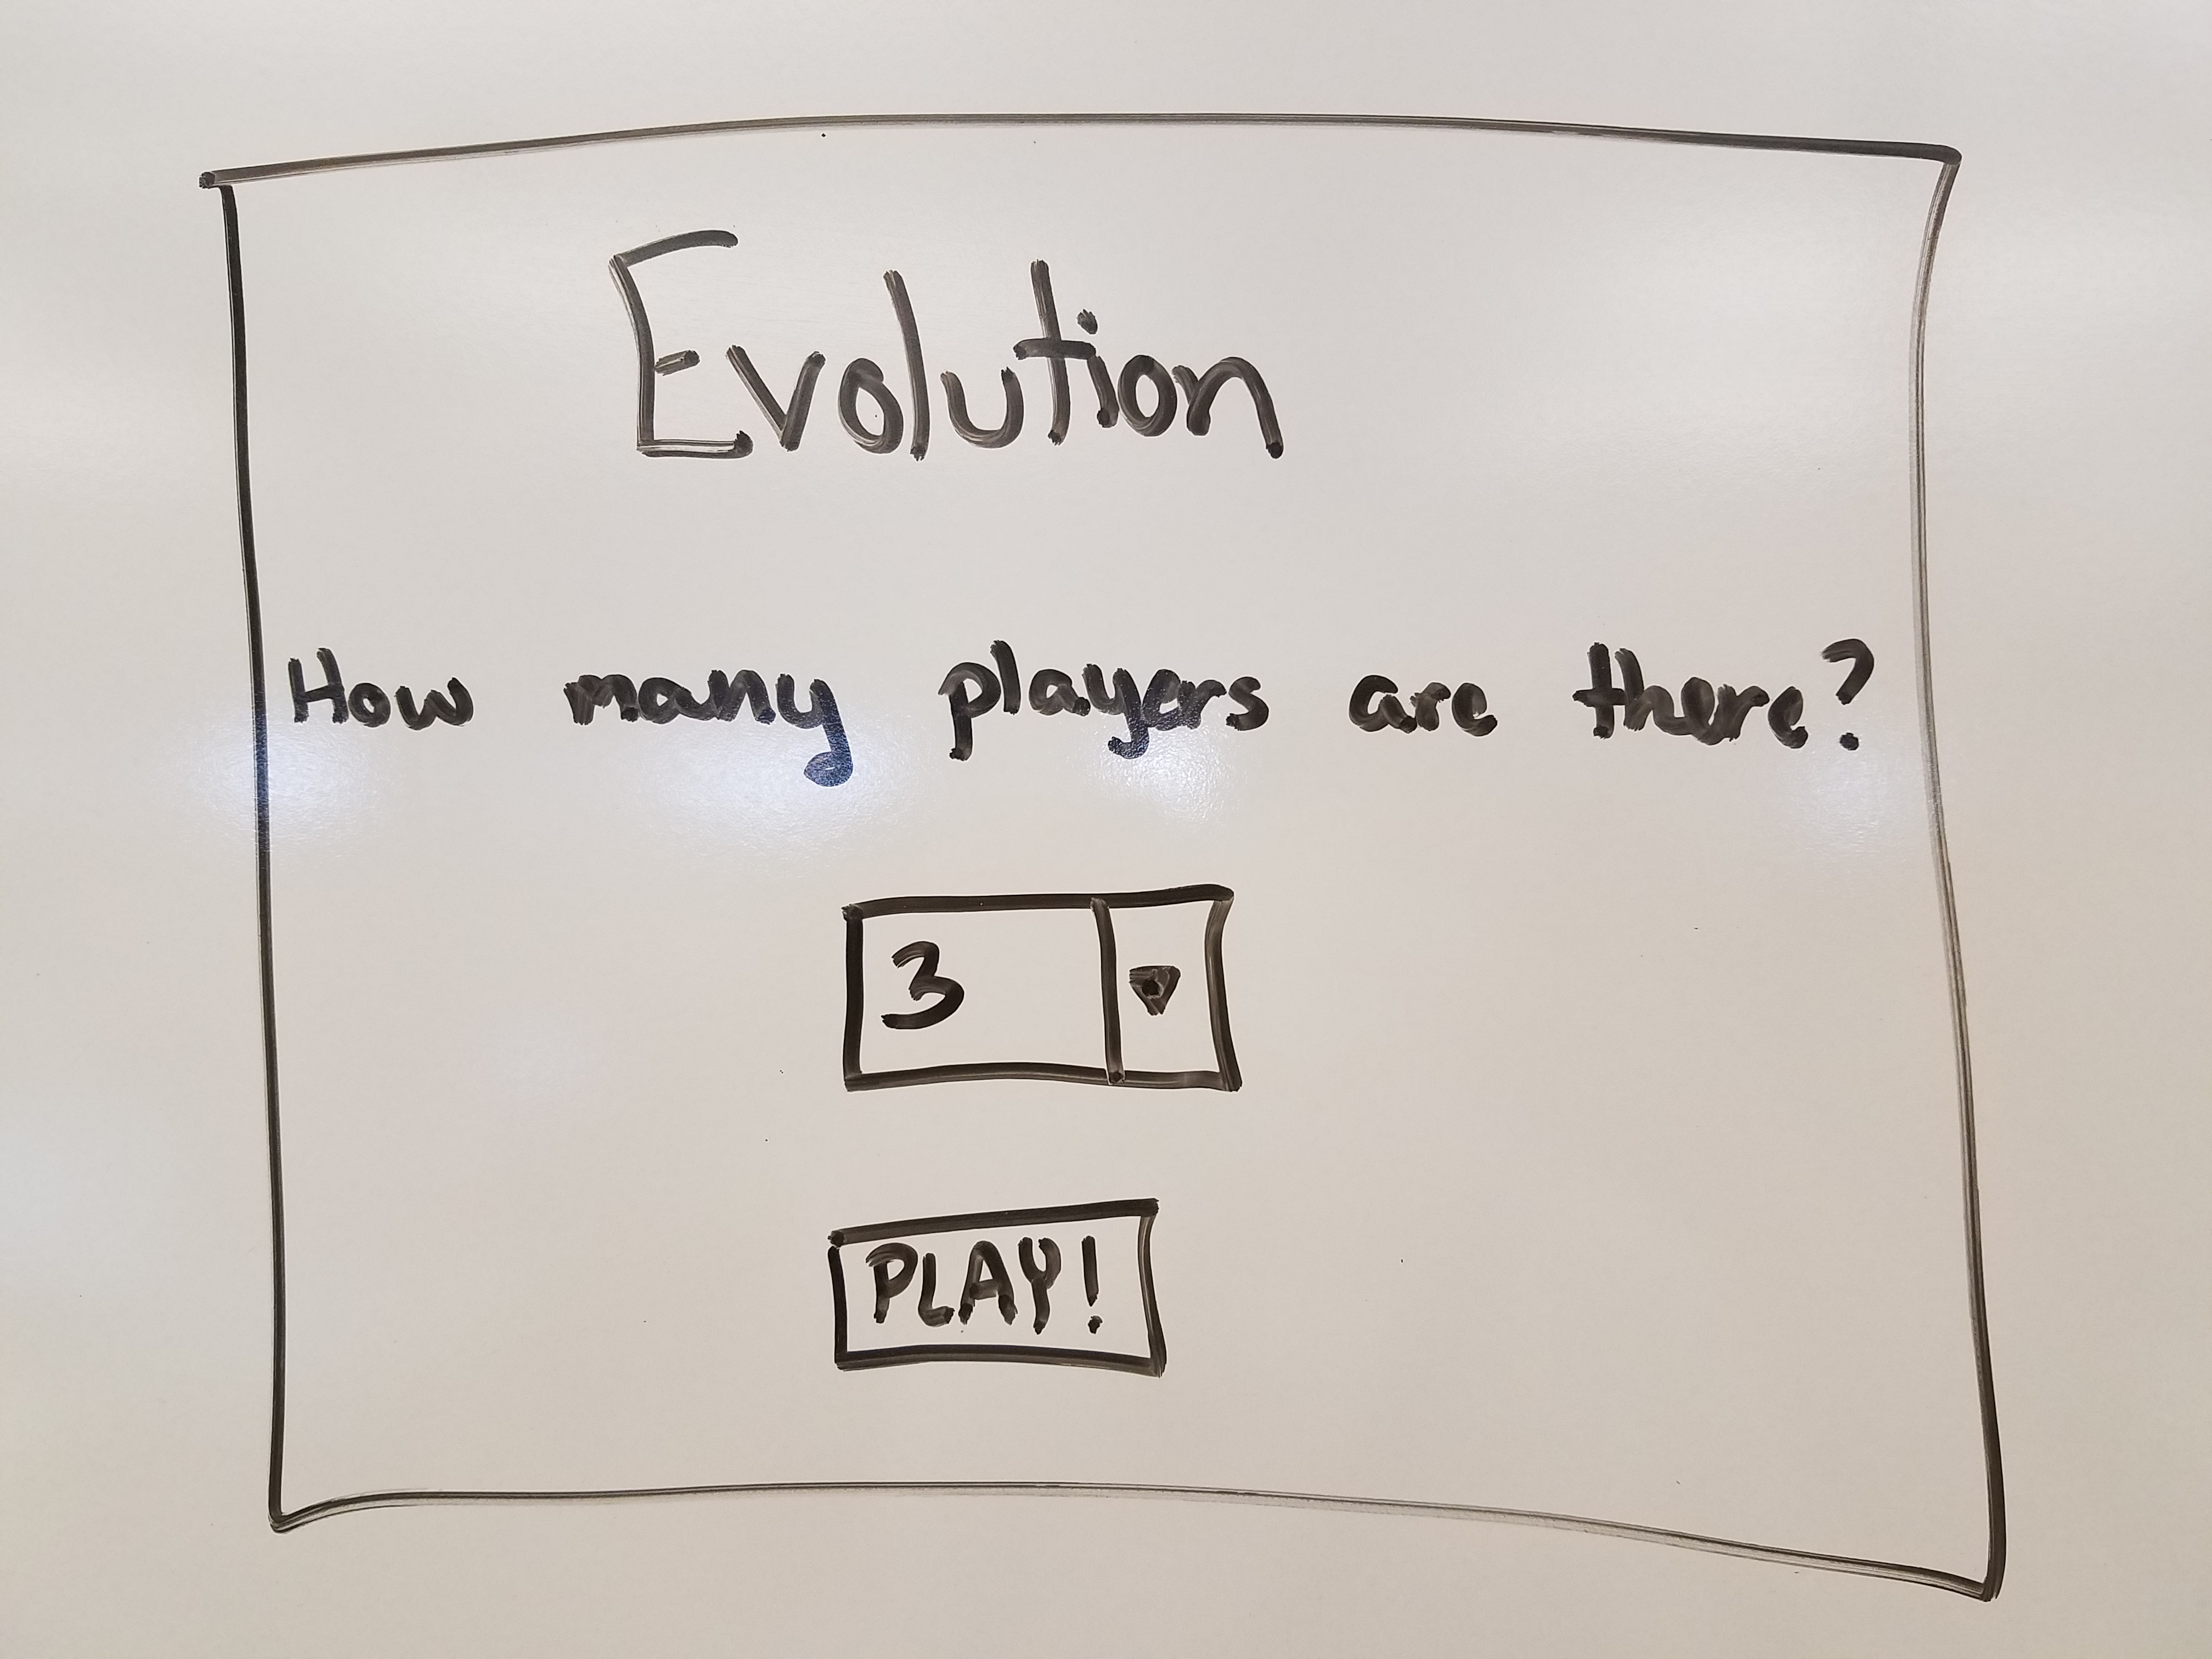 Evolution
How many players are there?
3
PLAY!